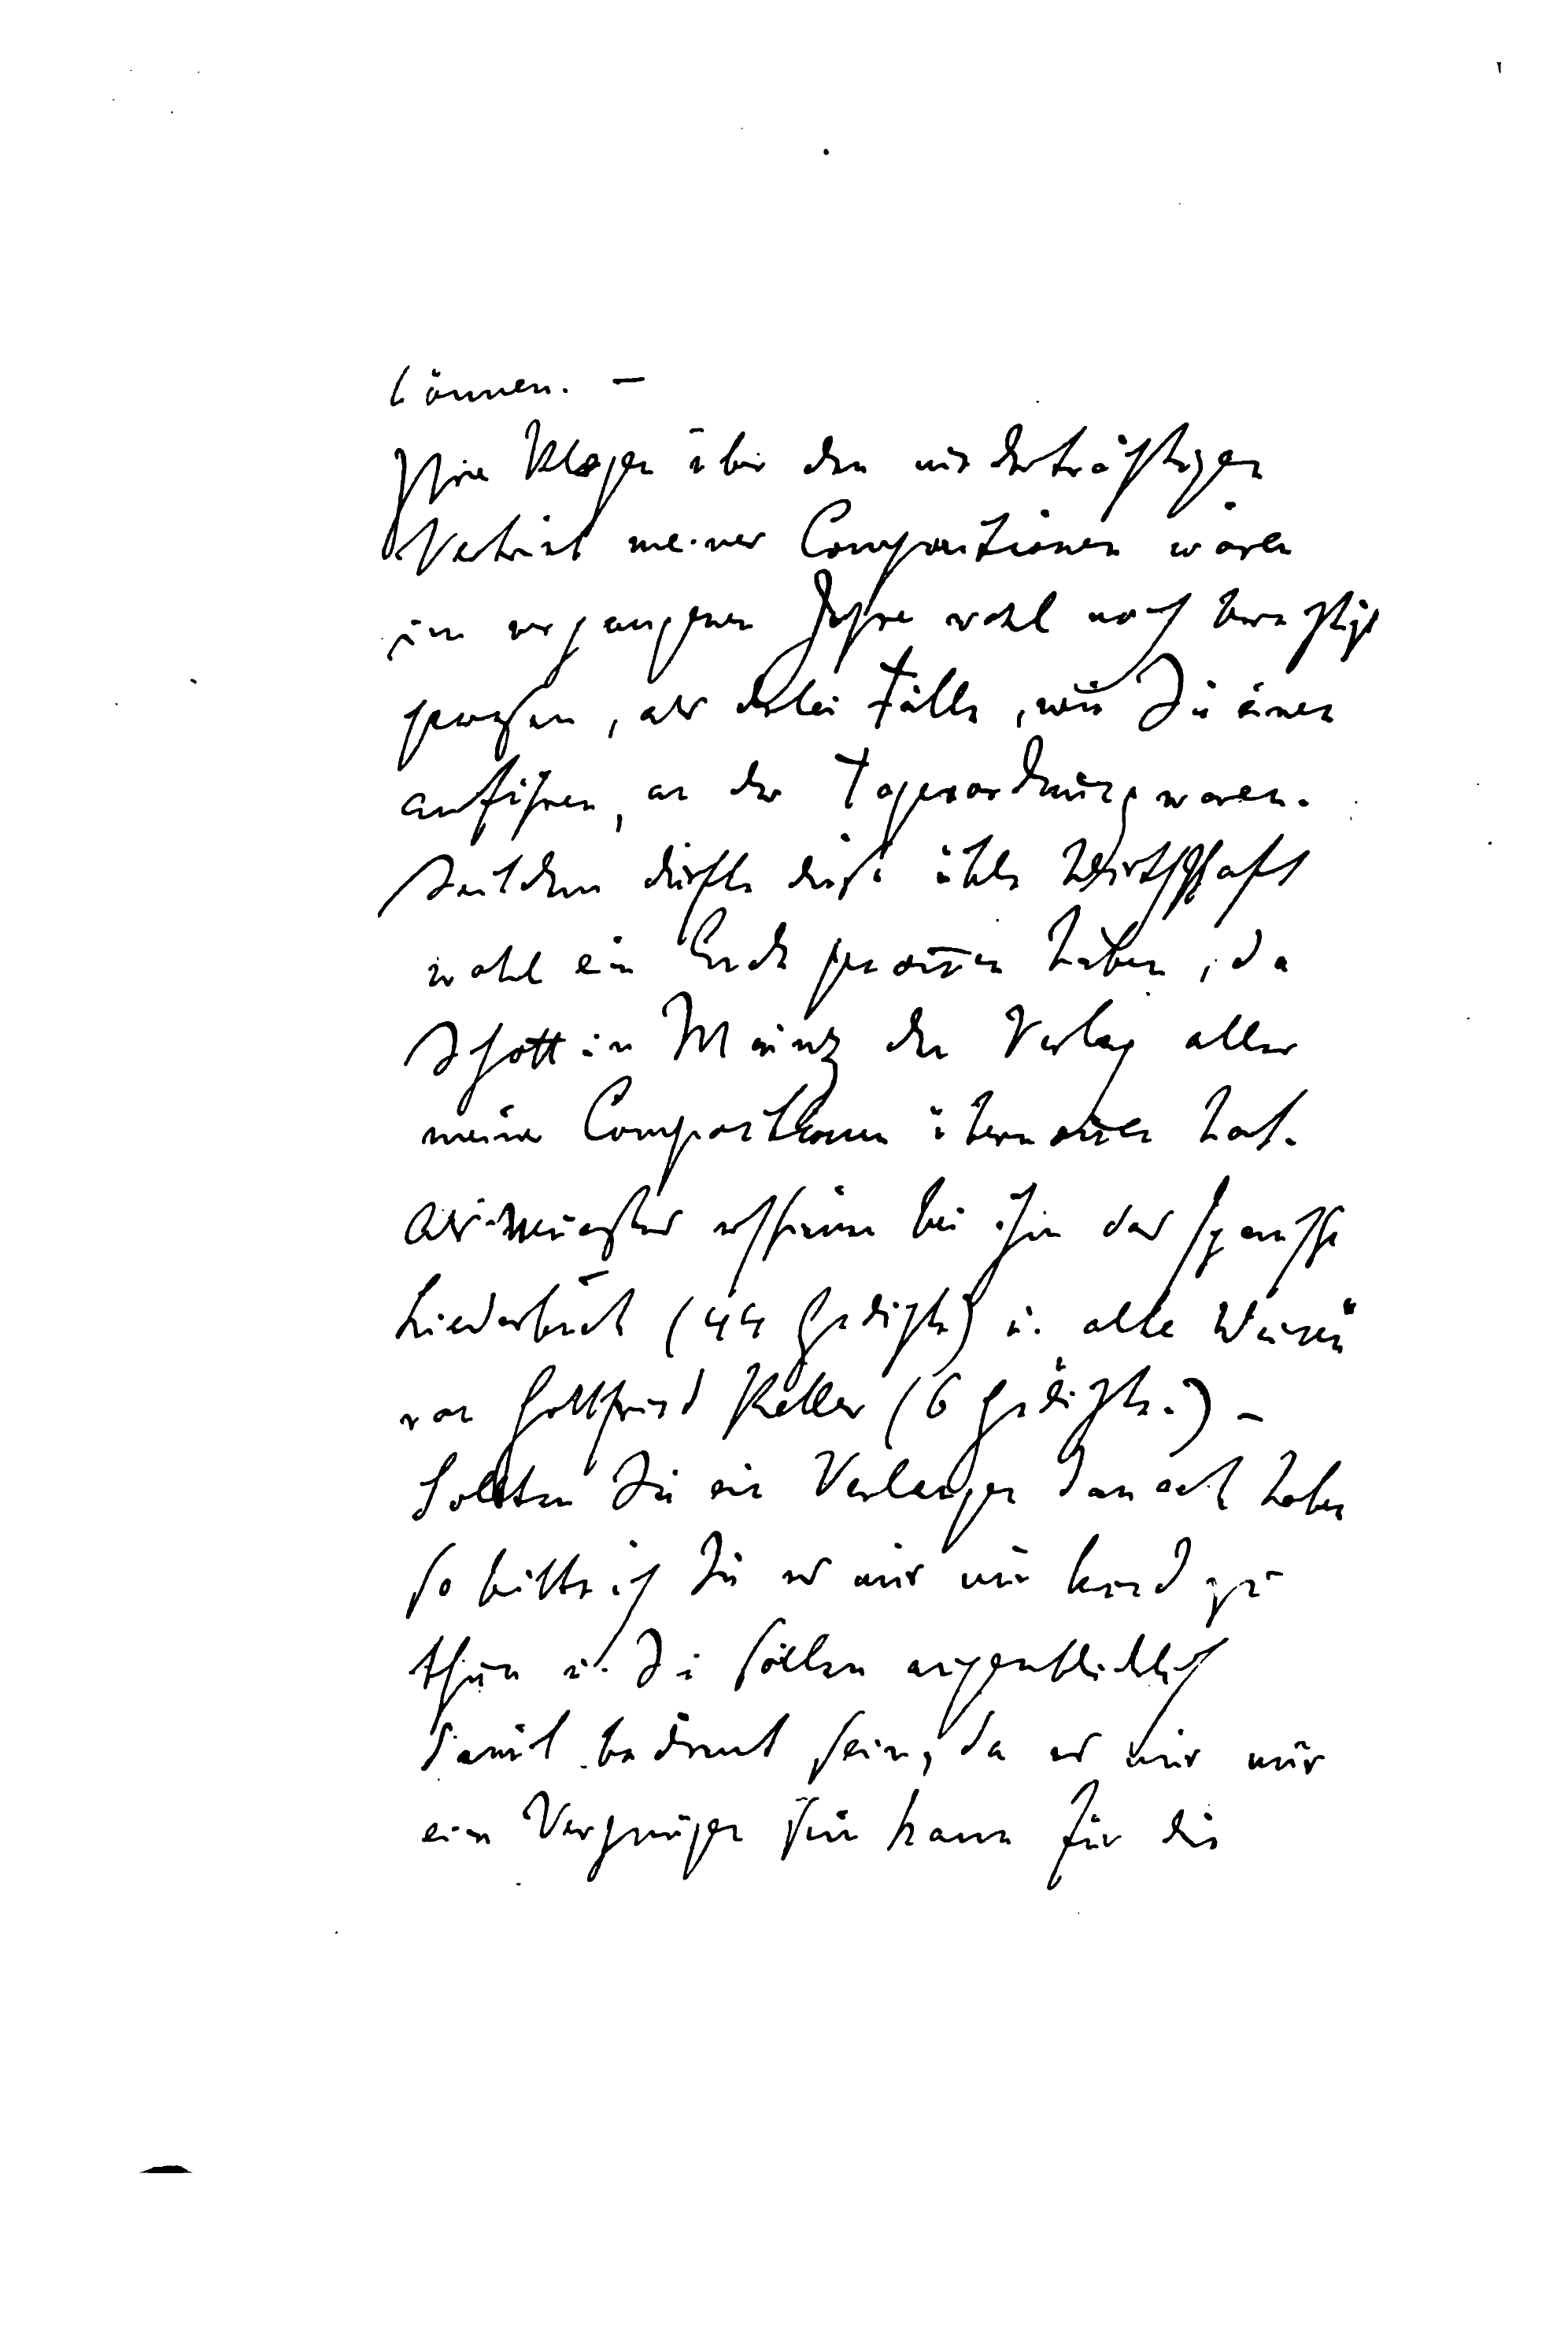 können. —
Ihre Klagen über den niederträchtigen
Vertrieb meiner Compositionen wären
im vergangenen Jahre wohl noch berechtigt
gewesen, als derlei Fälle, wie Sie einen
anführen, an der Tagesordnung waren.
Seitdem dürfte diese üble Wirthschaft
wohl ein Ende genom̄en haben, da
Schott in Mainz den Verlag aller
meiner Compositionen übernom̄en hat.
Als neuestes erschienen bei ihm das spanische
Liederbuch (44 Gedichte) u. alte Weisen"
von Gottfried Keller (6 Gedichte.) –
Sollten Sie ein Verlangen danach haben
so bitte ich Sie es mir nur kund zu
thun u. Sie sollen augenblicklich
damit bedient sein, da es mir nur
ein Vergnügen sein kann für die